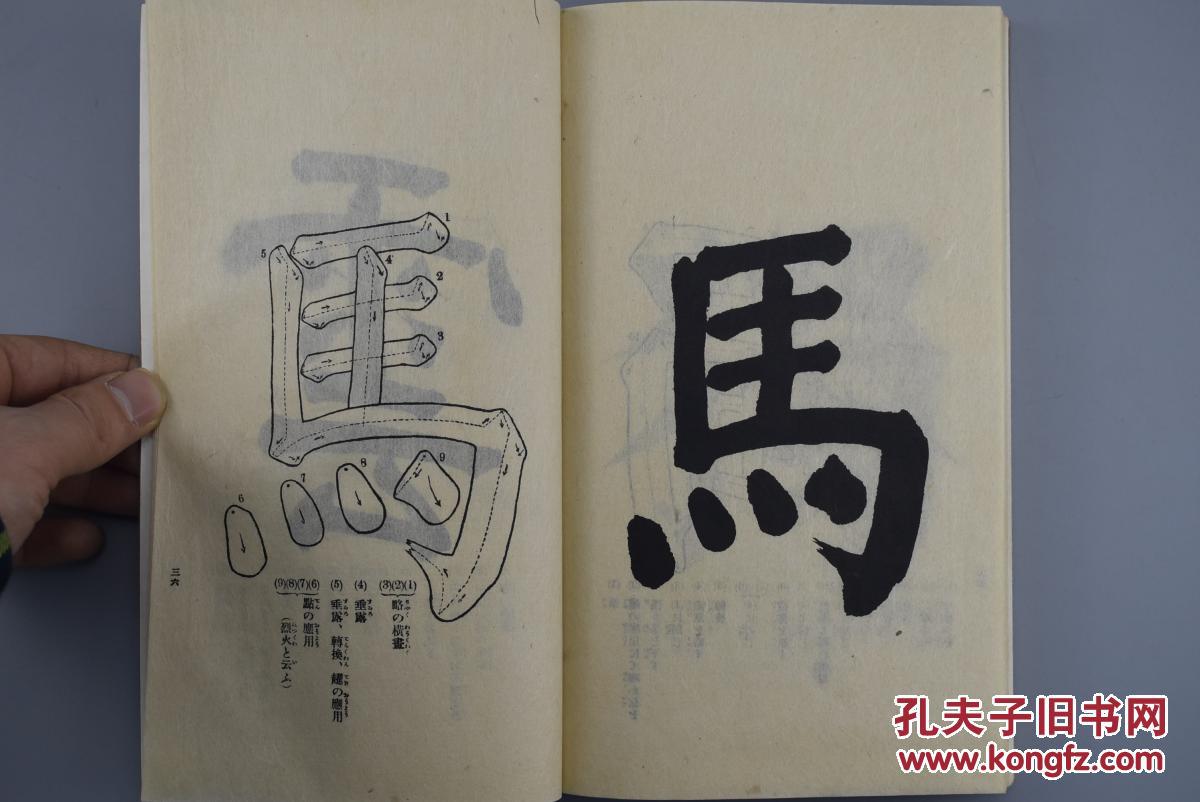 馬
1
2
3
4
5
6
7
8
9
(1)(2)(3) 略の横畫
(4) 垂露
(5) 垂露、轉換、趯の應用
(6)(7)(8)(9) 點の應用
(烈火と云ふ)
三六
孔夫子旧书网
www.kongfz.com